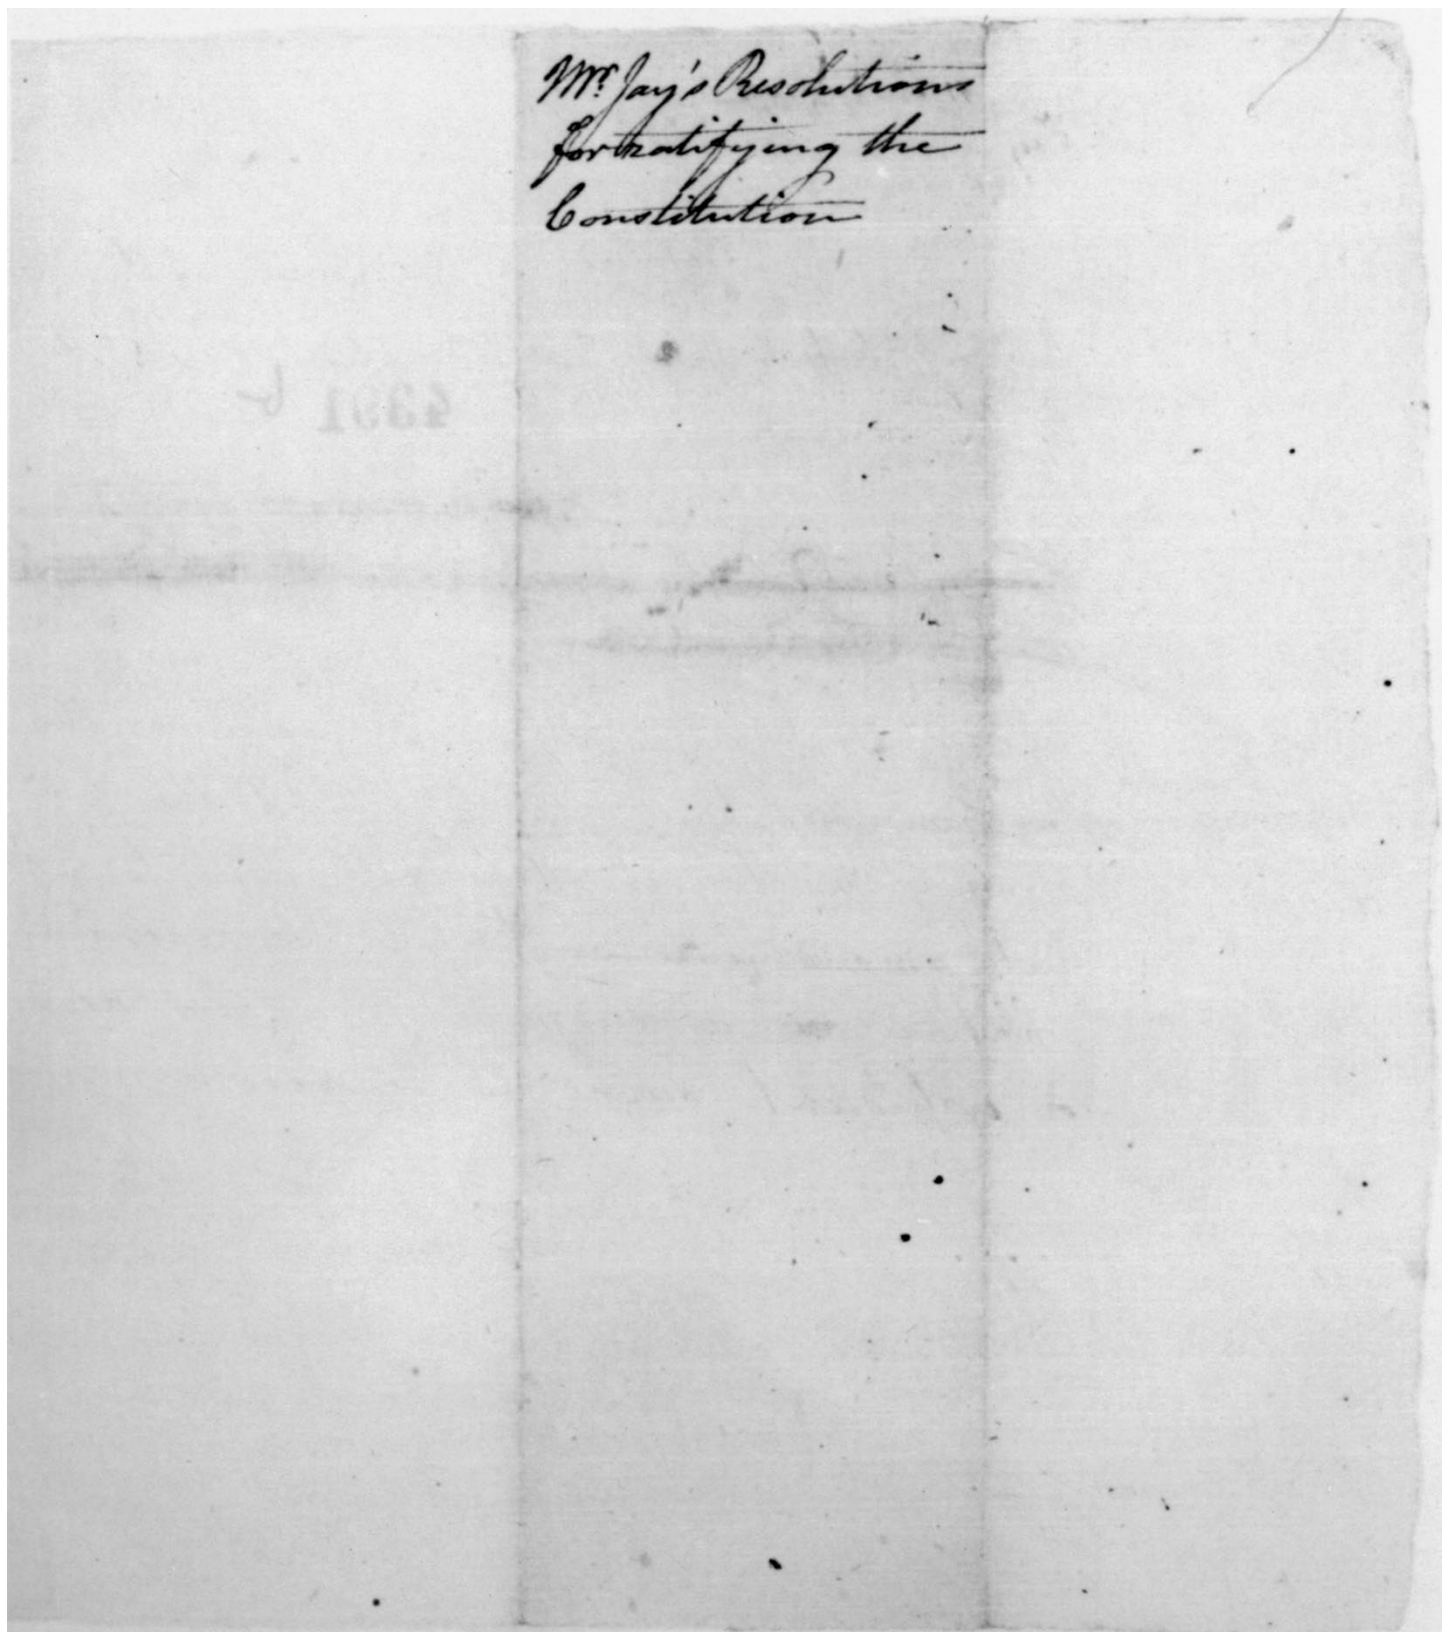 Mr. Jay's Resolutions
for ratifying the
Constitution